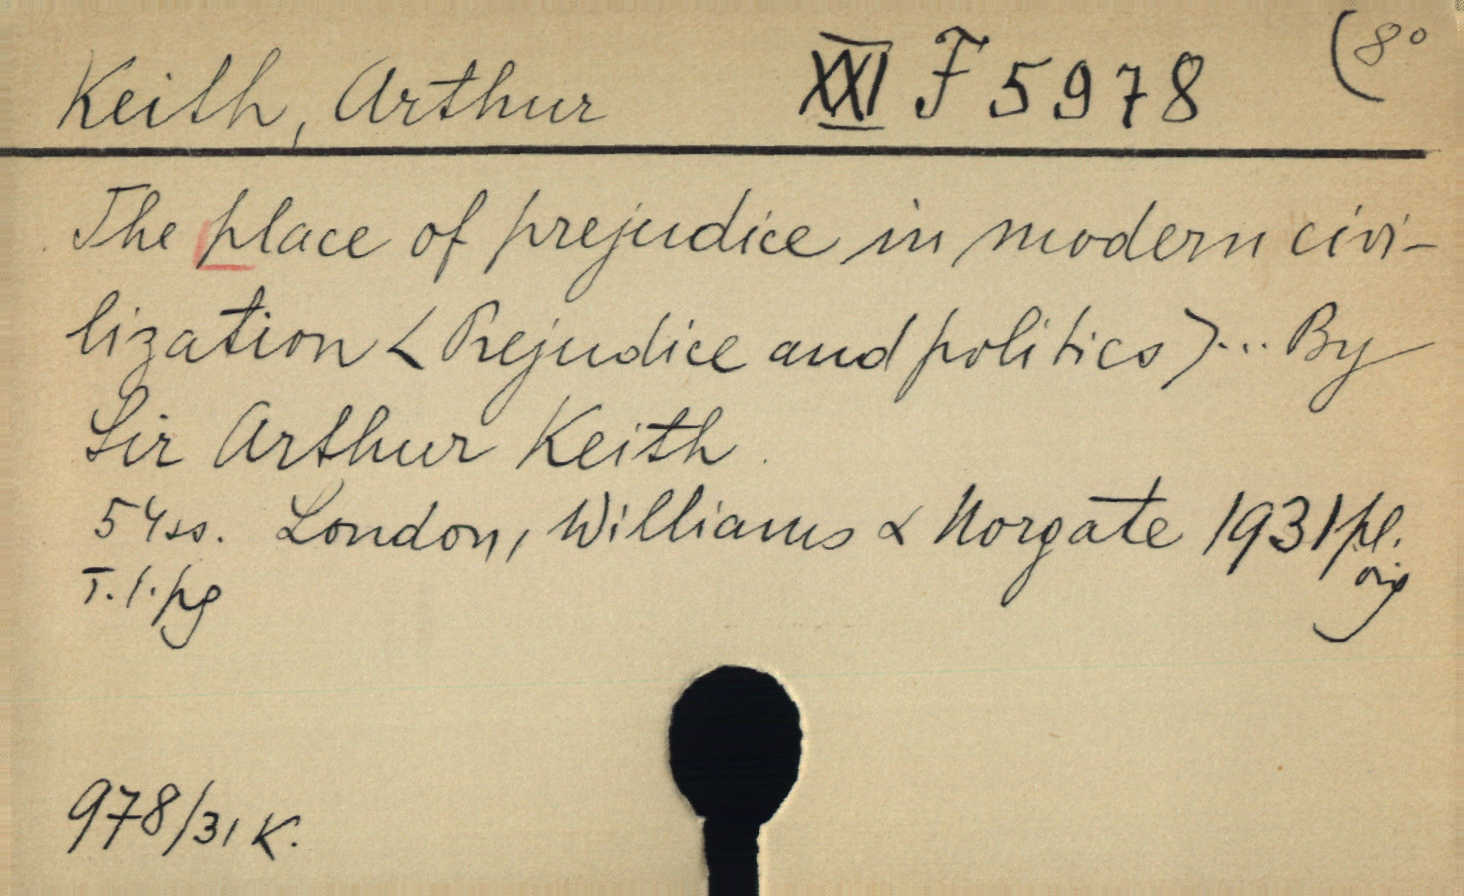 Keith, Arthur XXI F 5978 (8°
The place of prejudice in modern civi-
lization < Prejudice and politics > ... By
Sir Arthur Keith.
54 ss. London, Williams & Norgate 1931 pl.
T. 1. pg orig
978/31 K.